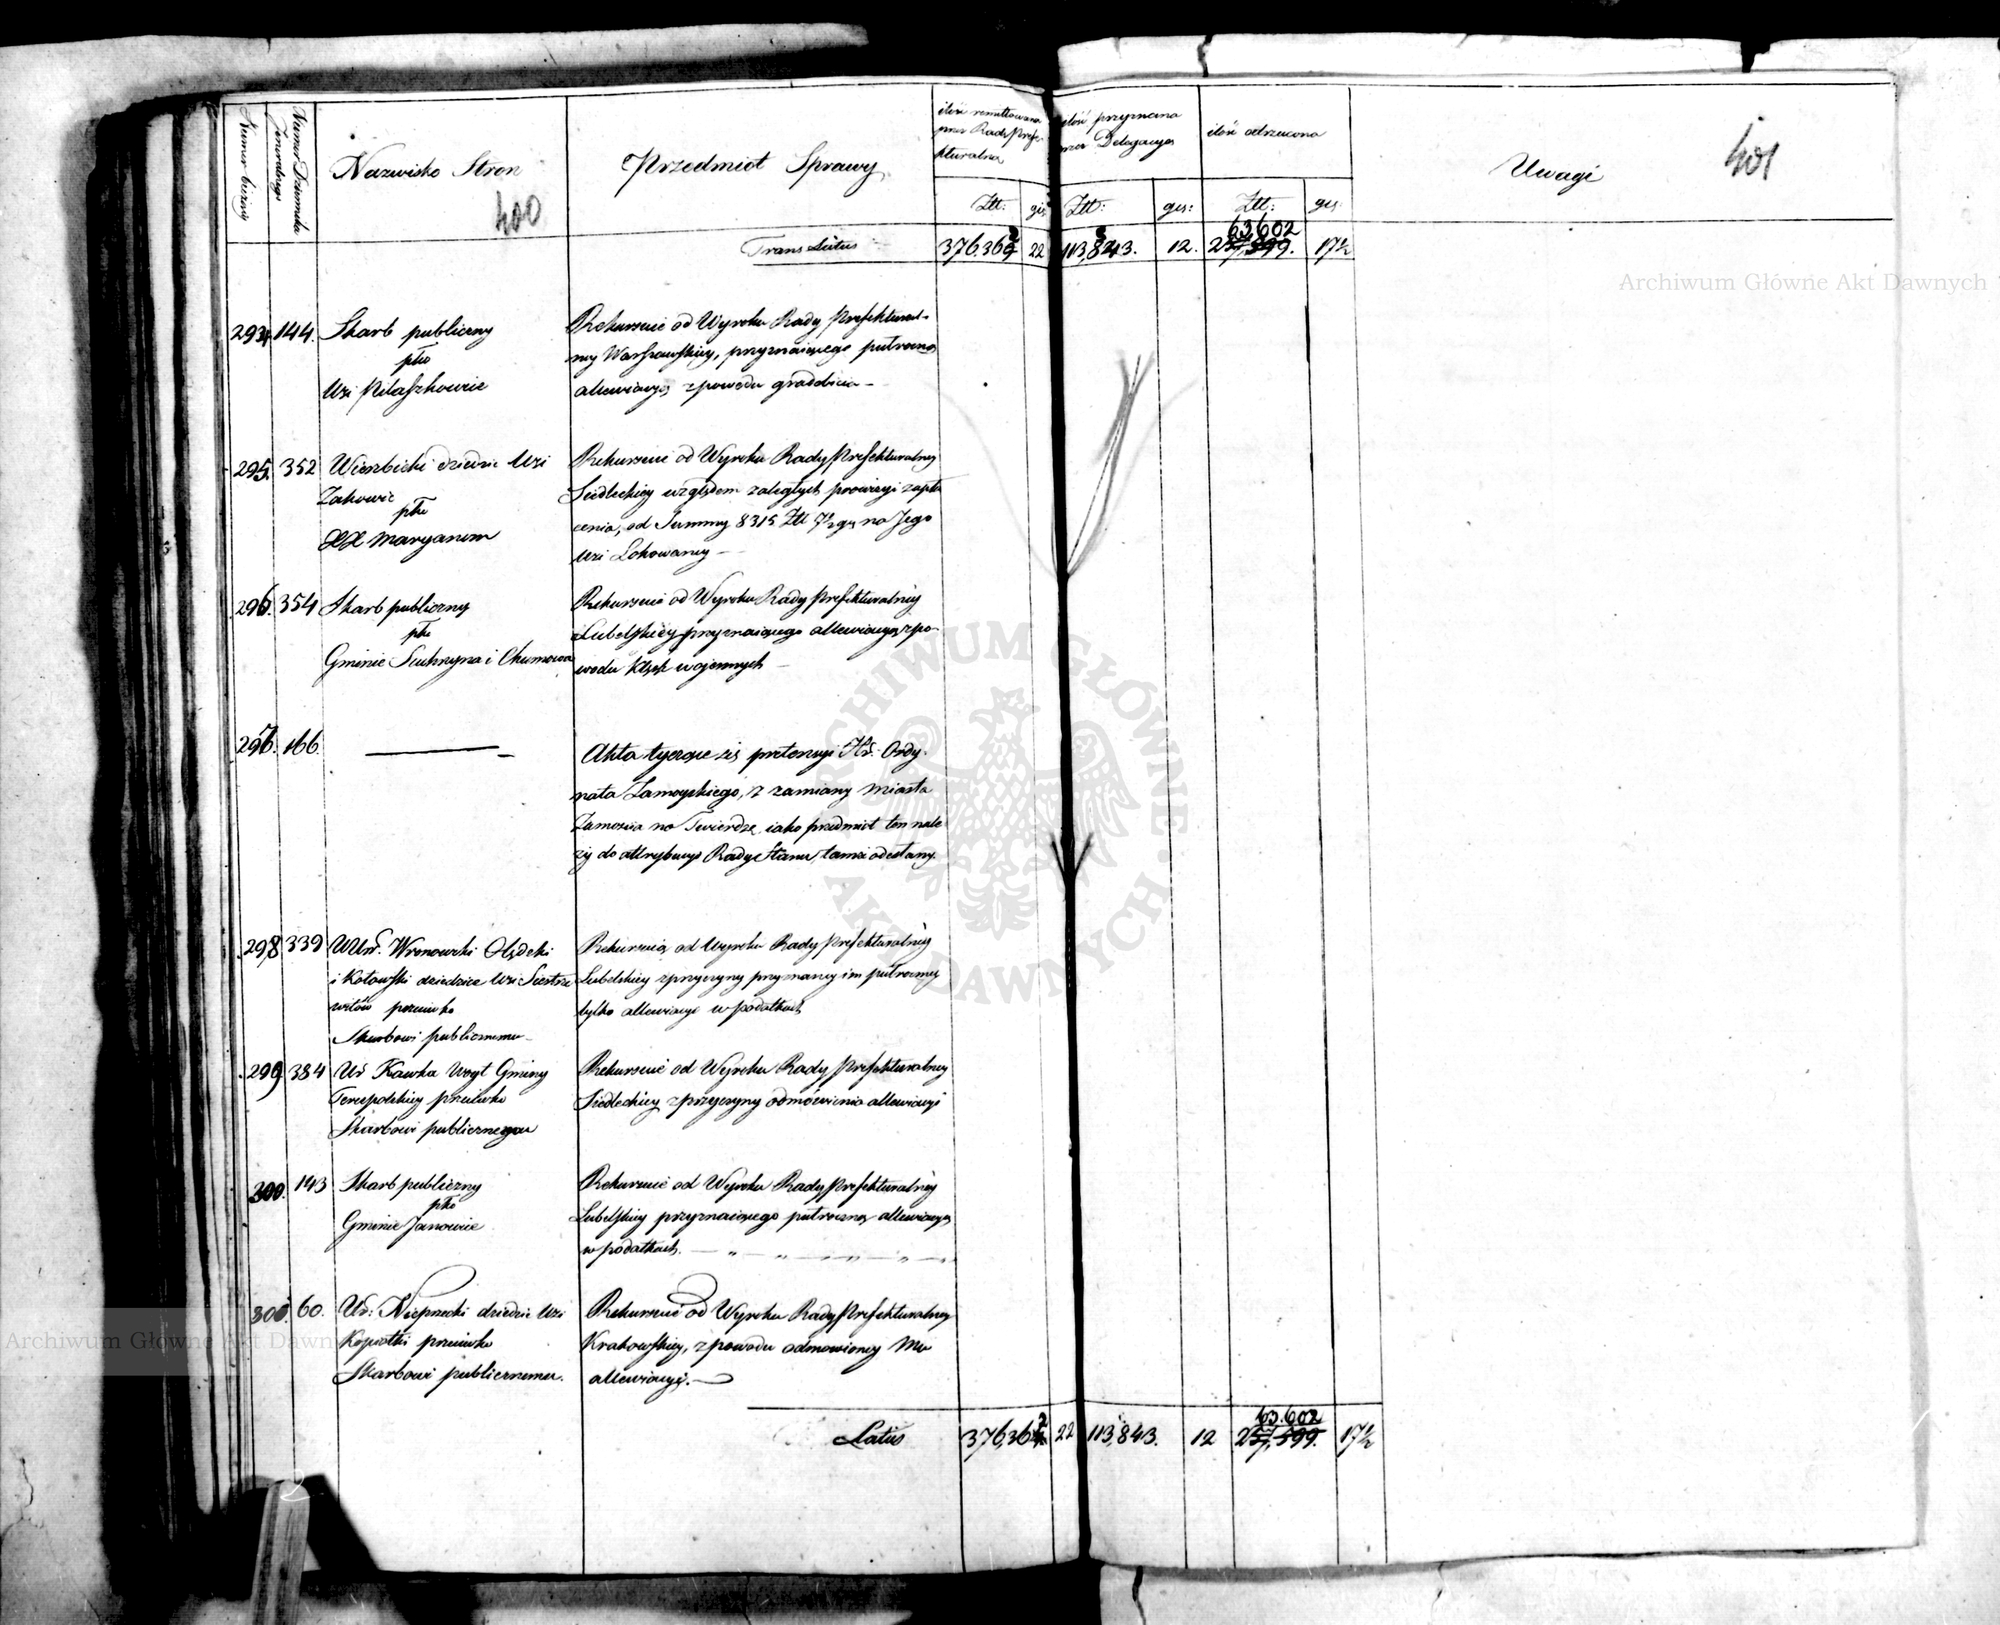 Numer bieżący
Numer Dziennika
Jeneralnego
Nazwisko Stron
400
Przedmiot Sprawy
ilość remittowana
przez Radę Prefe-
kturalną
ilość przyznana
przez Delegacyą
ilość odrzucona
Uwagi
401
Złł: gr: Złł: gr: Złł: gr:
63602
Trans Latus 376,362 22 113,843. 12. 257,599. 17½
Archiwum Główne Akt Dawnych
294. 144. Skarb publiczny
pko
Wsi Pilaszkowie
Rekursuie od Wyroku Rady Prefektural-
ney Warszawskiey, przyznaiącego pułroczną
allewiacyą z powodu gradobicia –
295. 352 Wierzbicki dziedzic Wsi
Zakowic
pko
XX Maryanom
Rekursuie od Wyroku Rady Prefekturalney
Siedleckiey względem zaległych prowizyi zapła
cenia, od Summy 8315 Złł 7½ gr na Jego
Wsi Lokowaney –
296. 354 Skarb publiczny
pko
Gminie
Rekursuie od Wyroku Rady Prefekturalney
Lubelskiey przyznaiącego allewiacyą z po-
wodu klęsk woiennych –
297. 166.
Akta tyczące się pretensyi Hr. Ordy-
nata Zamoyskiego, z zamiany miasta
Zamościa na Twierdzę, iako przedmiot ten nale
ży do attrybucyi Rady Stanu, tamże odesłany.
298 339 WUr. Wronowski Olędzki
i Kotowski dziedzice Wsi Siostrze
witów przeciwko
Skarbowi publicznemu –
Rekursuią od Wyroku Rady Prefekturalney
Lubelskiey z przyczyny przyznaney im pułroczney
tylko allewiacyi w podatkach
299 384 Ur Kawka Woyt Gminy
Terespolskiey przeciwko
Skarbowi publicznemu
Rekursuie od Wyroku Rady Prefekturalney
Siedleckiey z przyczyny odmówienia allewiacyi
300. 143 Skarb publiczny
pko
Gminie Janowie
Rekursuie od Wyroku Rady Prefekturalney
Lubelskiey przyznaiącego pułroczną allewiacyą
w podatkach.
301. 60. Ur: dziedzic Wsi
przeciwko
Skarbowi publicznemu.
Rekursuie od Wyroku Rady Prefekturalney
Krakowskiey, z powodu odmowioney Mu
allewiacyi. –
63.602
Latus 376,362 22 113,843. 12 257,599. 17½
Archiwum Główne Akt Dawnych
ARCHIWUM GŁÓWNE AKT DAWNYCH